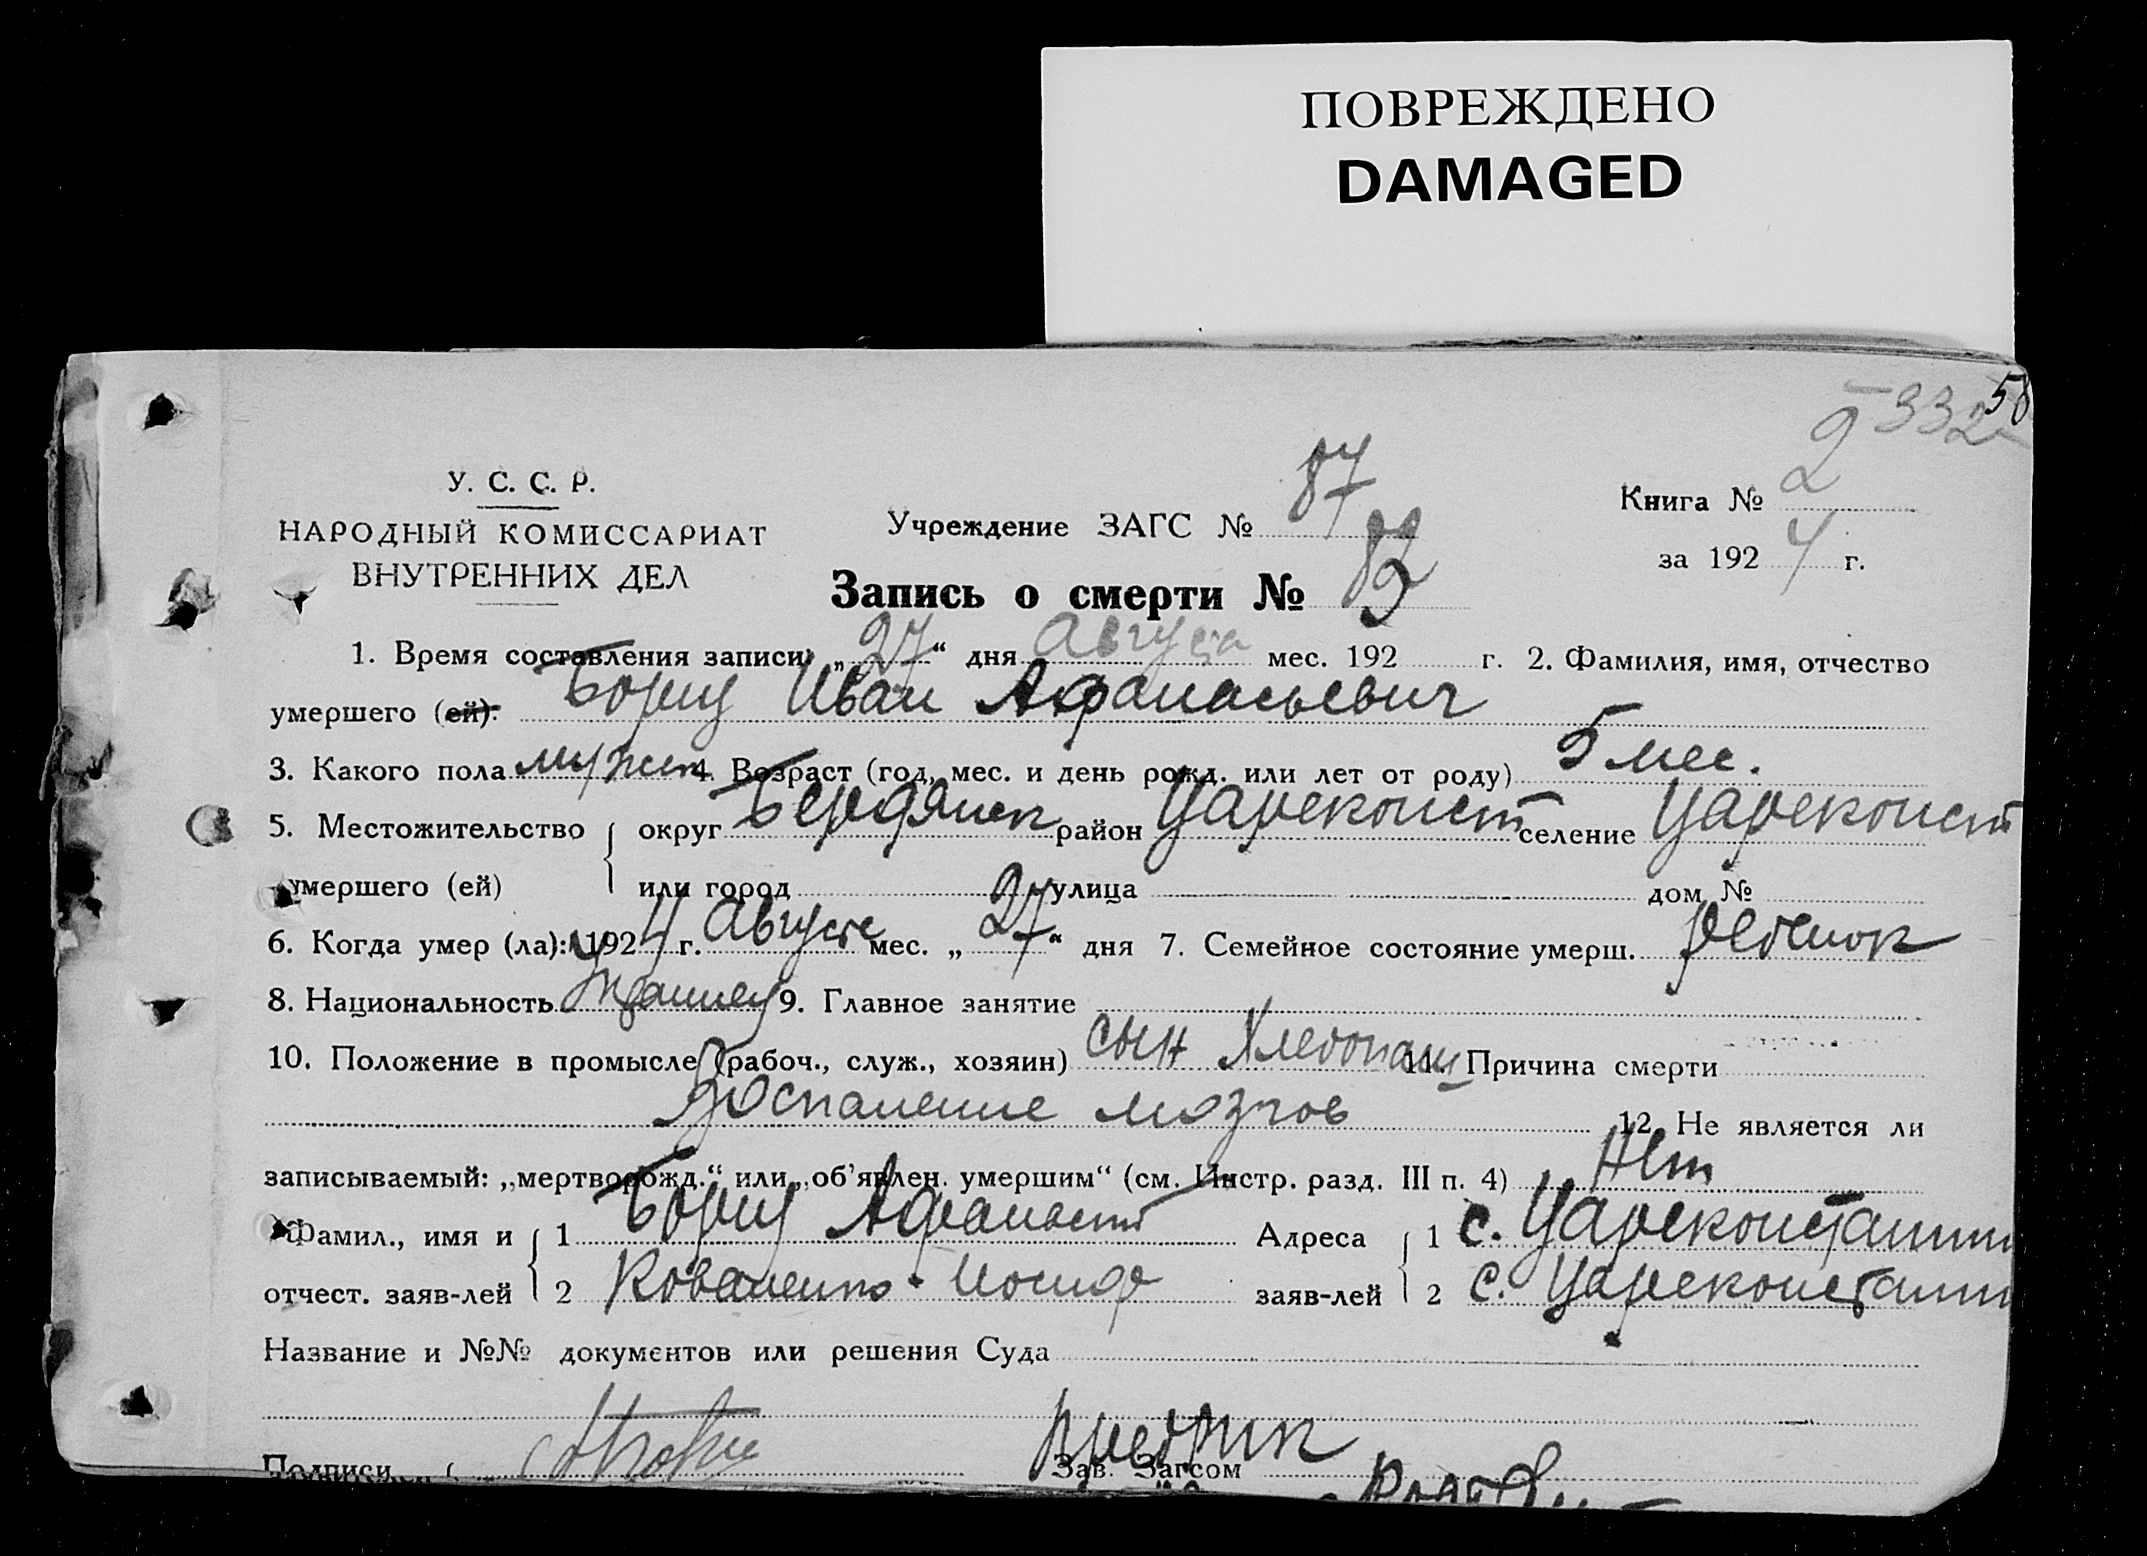 ПОВРЕЖДЕНО
DAMAGED
58
332
У. С. С. Р.
НАРОДНЫЙ КОМИССАРИАТ
ВНУТРЕННИХ ДЕЛ
Учреждение ЗАГС № 87
Книга № 2
за 1924 г.
Запись о смерти № 82
1. Время составления записи „27“ дня Августа мес. 192 г. 2. Фамилия, имя, отчество
умершего (ей): Борщ Иван Афанасьевич
3. Какого пола мужск 4. Возраст (год, мес. и день рожд. или лет от роду) 5 мес.
5. Местожительство округ Бердянск район Цареконст селение Цареконст
умершего (ей) или город улица дом №
6. Когда умер (ла): 1924 г. Августа мес. „27“ дня 7. Семейное состояние умерш. ребенок
8. Национальность Украинец 9. Главное занятие
10. Положение в промысле (рабоч., служ., хозяин) сын Хлебопаш 11. Причина смерти
Воспаление мозгов 12. Не является ли
записываемый: „мертворожд.“ или „об'явлен. умершим“ (см. Инстр. разд. III п. 4) Нет
Фамил., имя и 1 Борщ Афанасий Адреса 1 с. Цареконстантин
отчест. заяв-лей 2 Коваленко Иосиф заяв-лей 2 с. Цареконстантин
Название и №№ документов или решения Суда
Подписи Зав. Загсом